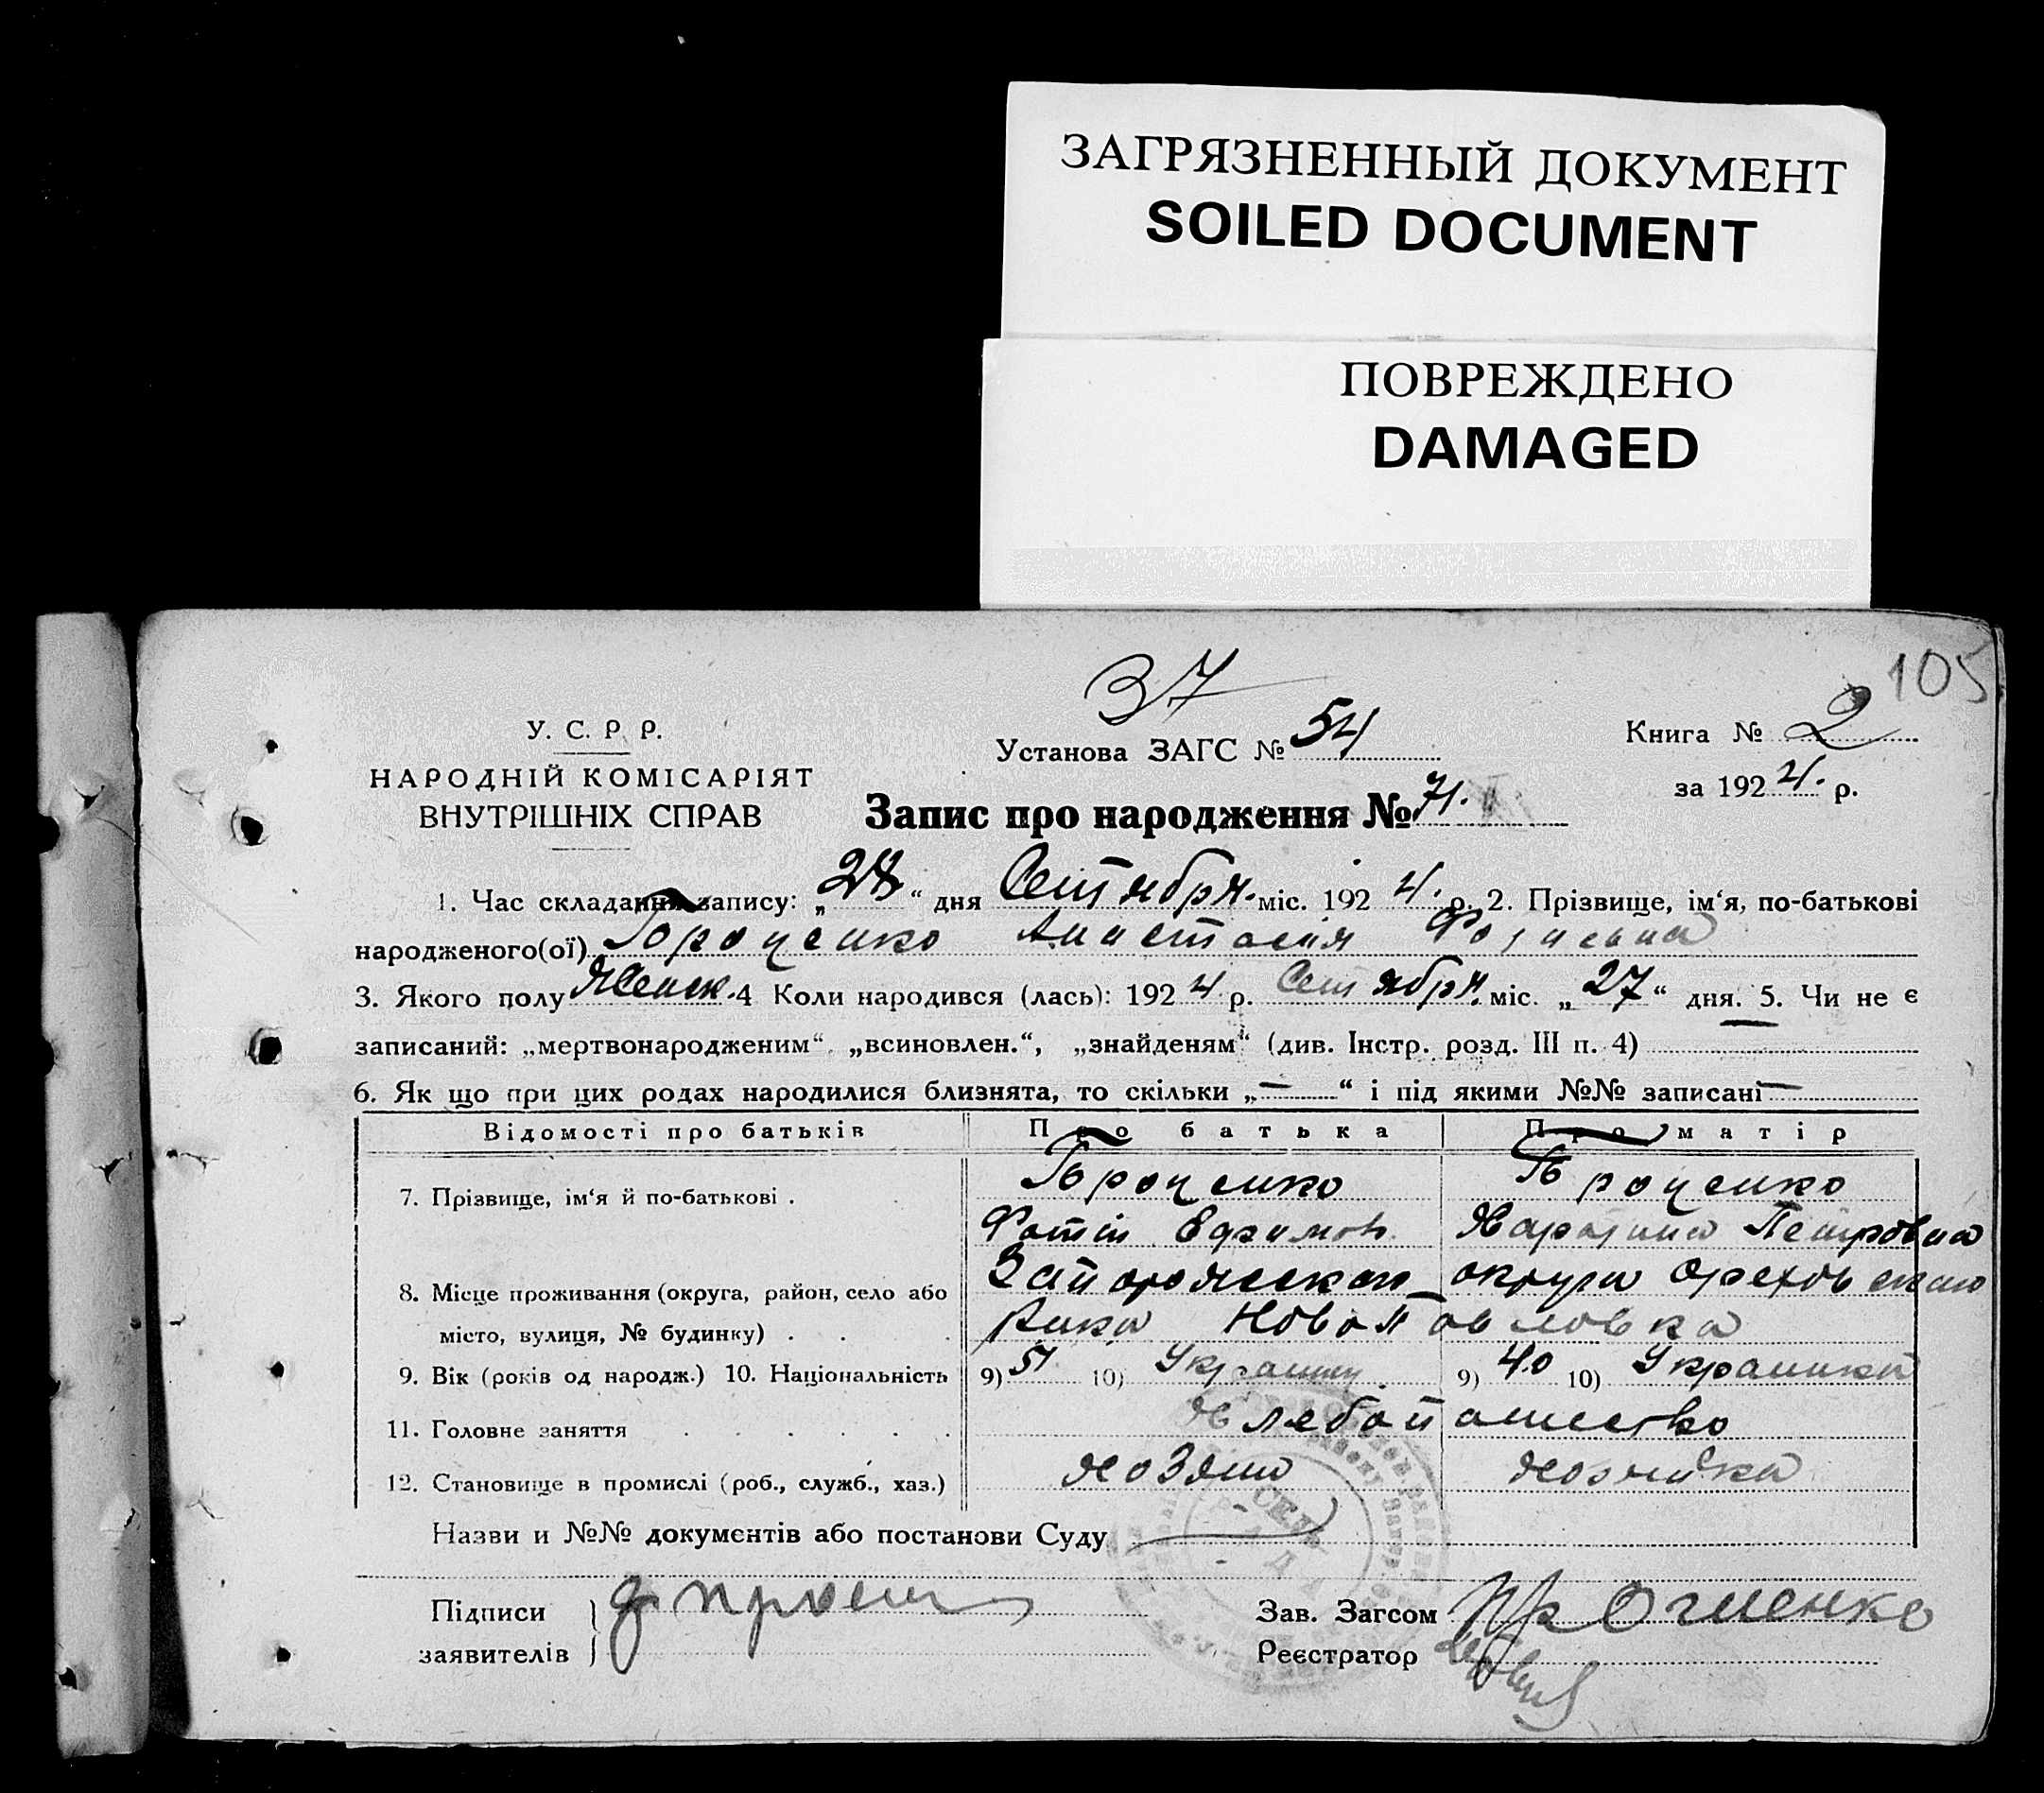 ЗАГРЯЗНЕННЫЙ ДОКУМЕНТ
SOILED DOCUMENT
ПОВРЕЖДЕНО
DAMAGED
105
37
У. С. Р. Р.
Установа ЗАГС № 54
Книга № 2
НАРОДНІЙ КОМІСАРІЯТ
за 1924. р.
ВНУТРІШНІХ СПРАВ
Запис про народження № 71.
1. Час складання запису: „28“ дня Сентября. міс. 1924. р. 2. Прізвище, ім‘я, по-батькові
народженого(ої) Проценко Анастасия
3. Якого полу Женск. 4 Коли народився (лась): 1924 р. Сентября. міс. „27“ дня. 5. Чи не є
записаний: „мертвонародженим“, „всиновлен.“, „знайденям“ (див. Інстр. розд. III п. 4) —
6. Як що при цих родах народилися близнята, то скільки „—“ і під якими №№ записані —
Відомості про батьків Про батька Про матір
7. Прізвище, ім‘я й по-батькові . Проценко Проценко
Фотий Ефимов. Петровна
8. Місце проживання (округа, район, село або Запорожской округи Ореховского
місто, вулиця, № будинку) . . . Р-на Новопавловка
9. Вік (років од народж.) 10. Національність 9) 51 10) Украинц. 9) 40 10) Украинка
11. Головне заняття . . . . . . Хлебопашество
12. Становище в промислі (роб., служб., хаз.) Хозяин Хозяйка
Назви и №№ документів або постанови Суду
Підписи
Зав. Загсом Огиенко
заявителів
Реєстратор